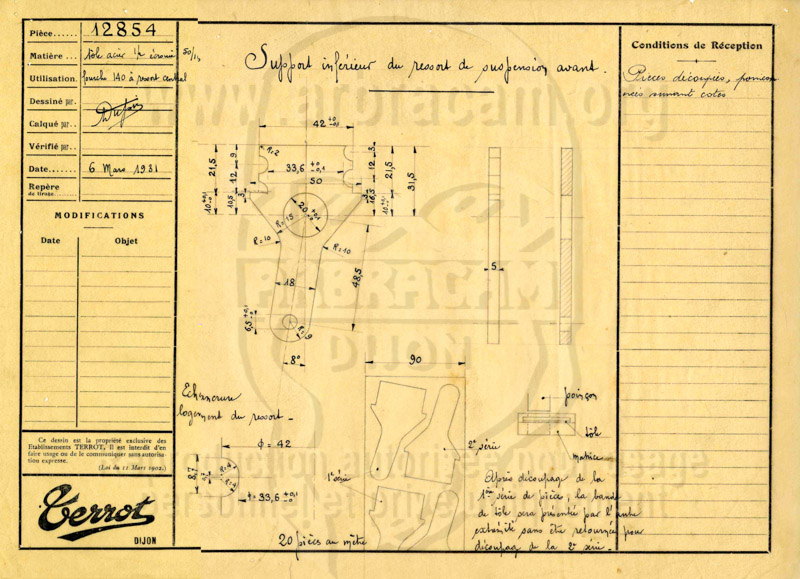 Pièce...... 12854
Matière... tôle acier 1/2 écrouie 50/10
Utilisation. fourche 140 à ressort central
Dessiné par..
Calqué par..
Vérifié par..
Date....... 6 Mars 1931
Repère
de tirage......
MODIFICATIONS
Date Objet
Ce dessin est la propriété exclusive des
Etablissements TERROT. Il est interdit d'en
faire usage ou de le communiquer sans autorisa-
tion expresse.
(Loi du 11 Mars 1902.)
Terrot
DIJON
Support inférieur du ressort de suspension avant.
Conditions de Réception
Pièces découpées, poinçon
nées suivant cotes
www.arbracam.org
FABRACAM
DIJON
42 +0 -0,1
R=2
33,6 +0 -0,1
50
21,5
9
12
10 +0,1 -0
10,5
3
3
12
21,5
31,5
16,5
3
10 +0,1 -0
20 +0,1 -0
R=15
R=10
R=10
18
48,5
6,5 +0,1 -0
R=9
8°
5
90
Echancrure
logement du ressort -
ϕ = 42
8,7
R=4
R=4
33,6 +0,1 -0
1ère série
2e série
20 pièces au mètre
poinçon
tôle
matrice
Après découpage de la
1ère série de pièces, la bande
de tôle sera présentée par l'autre
extrémité sans être retournée pour
découpage de la 2e série -